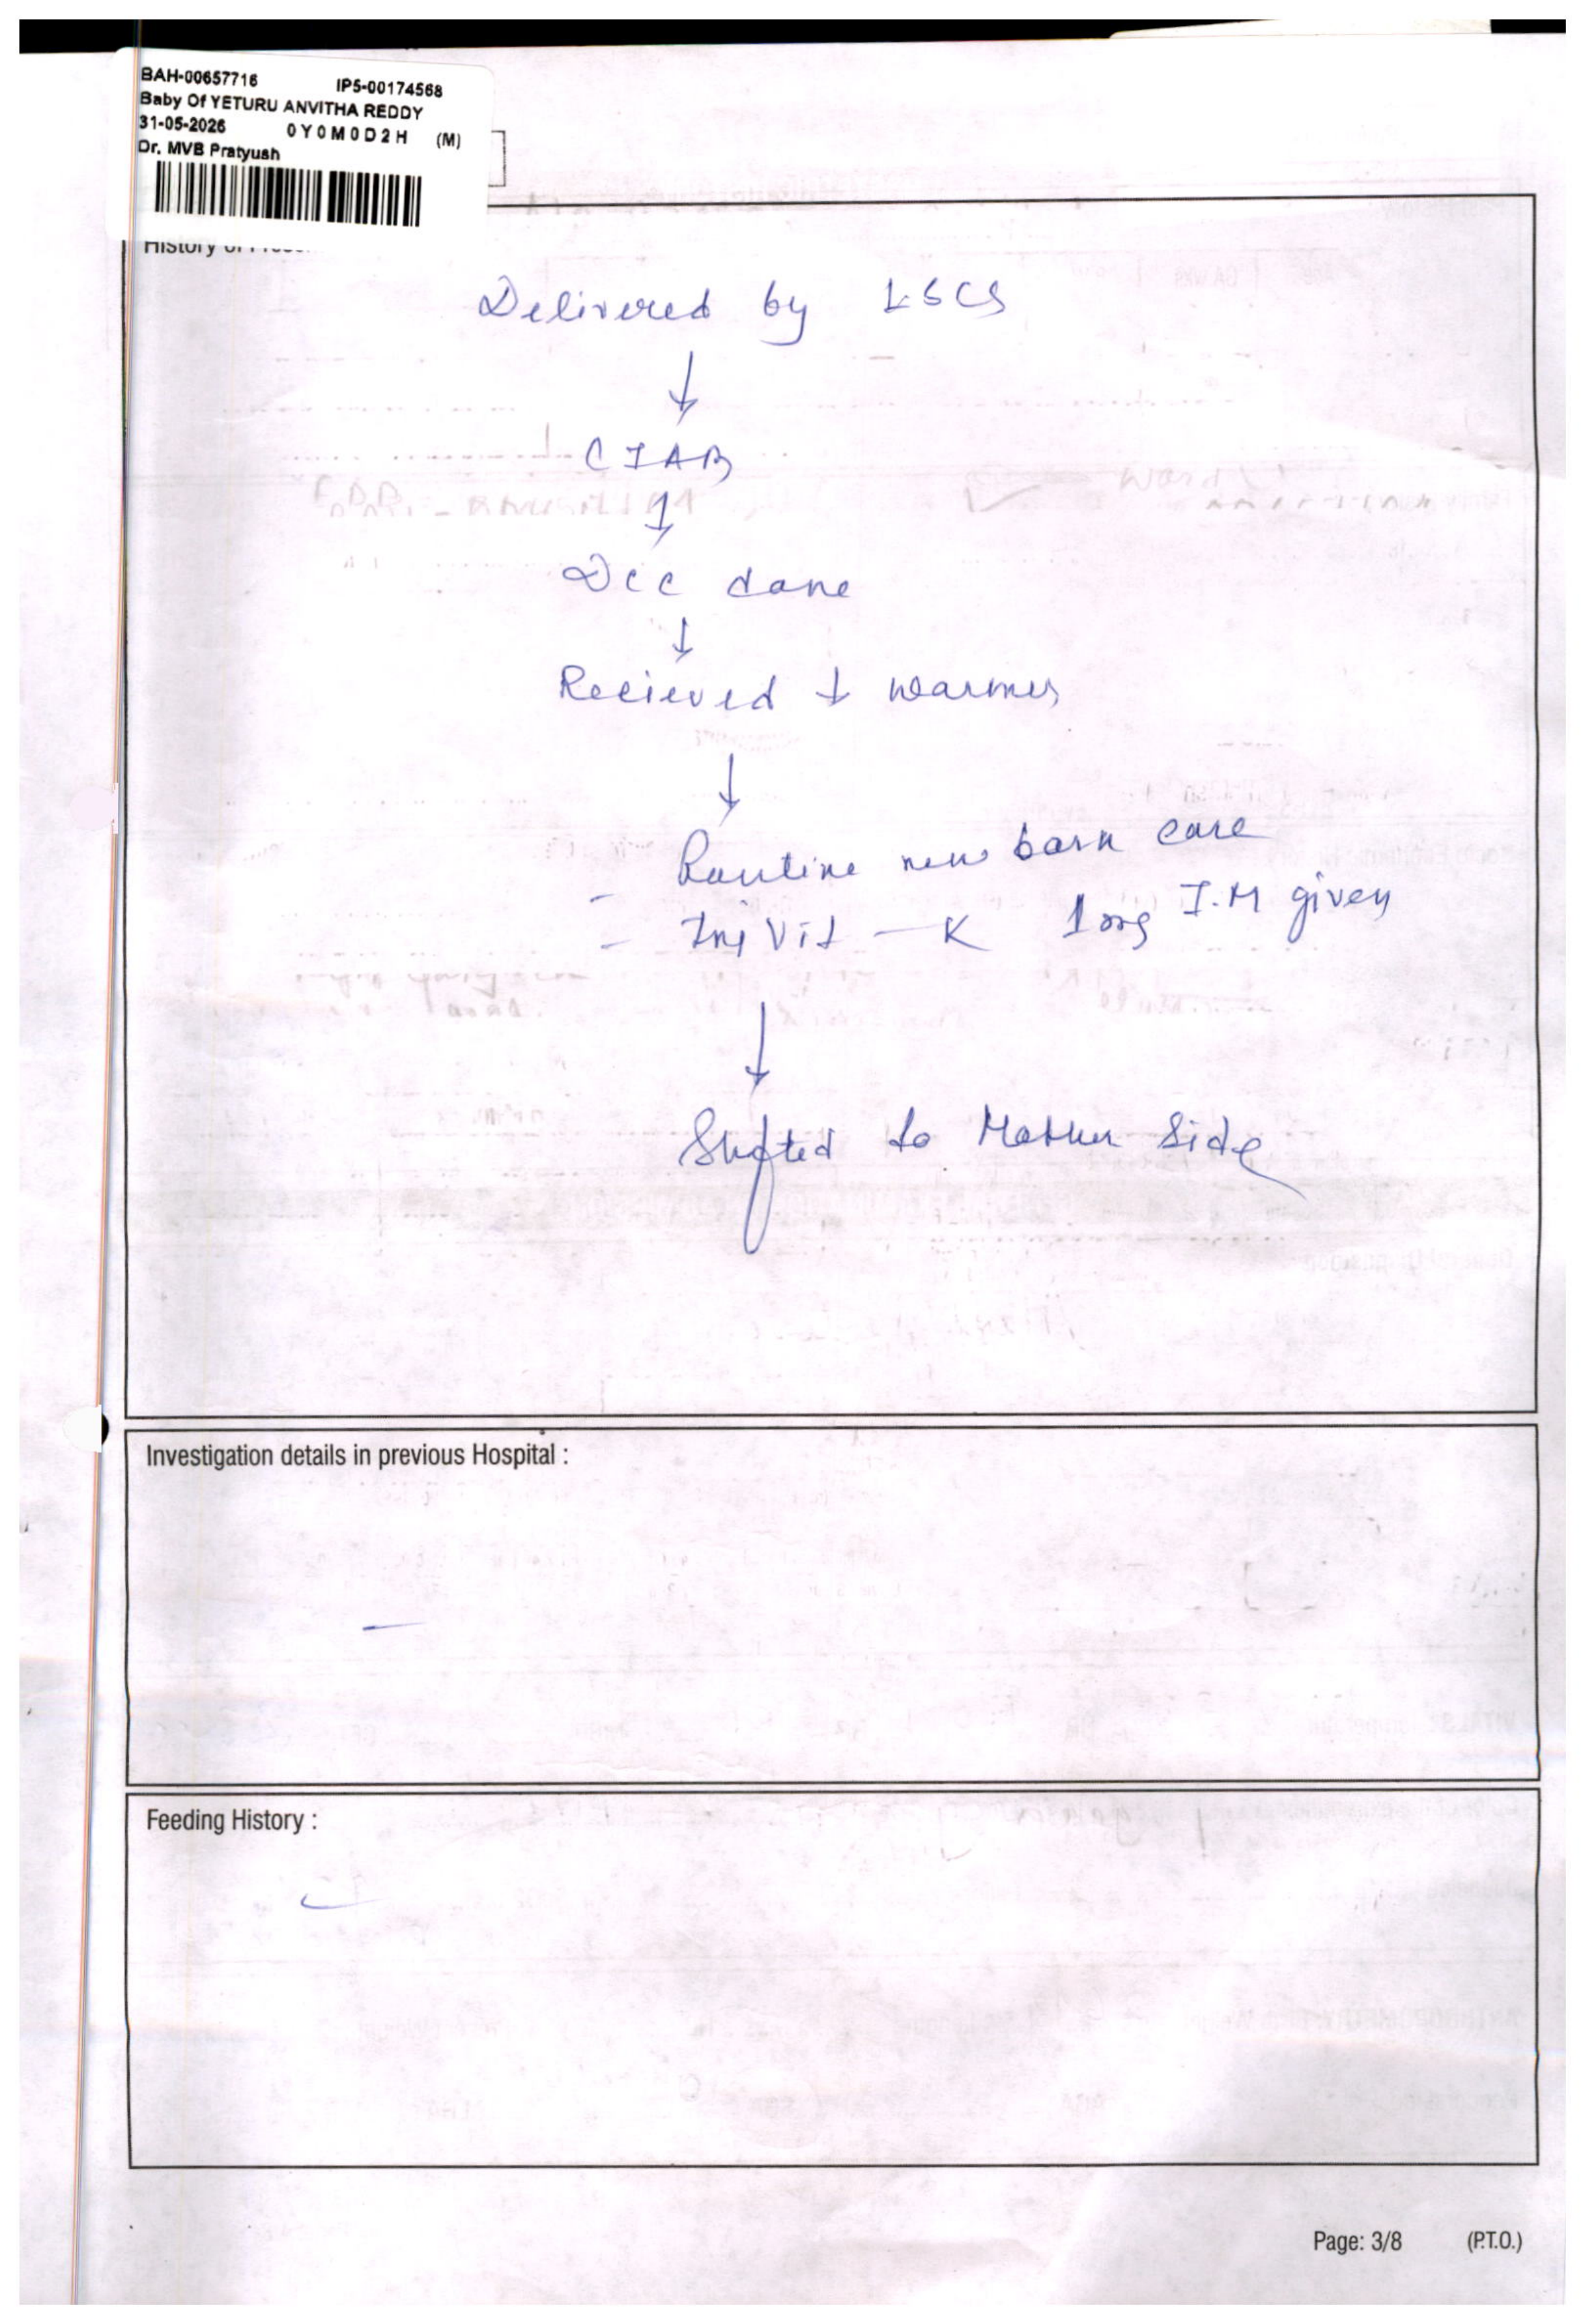 BAH-00657716 IP5-00174568
Baby Of YETURU ANVITHA REDDY
31-05-2026 0Y0M0D2H (M)
Dr. MVB Pratyush
History of
Delivered by LSCS
↓
CIAB
↓
Dcc done
↓
Recieved ↓ warmer
↓
- Routine new born care
- Inj Vit - K 1mg I.M given
↓
Shifted to Mother Side
Investigation details in previous Hospital :
-
Feeding History :
Page: 3/8 (P.T.O.)